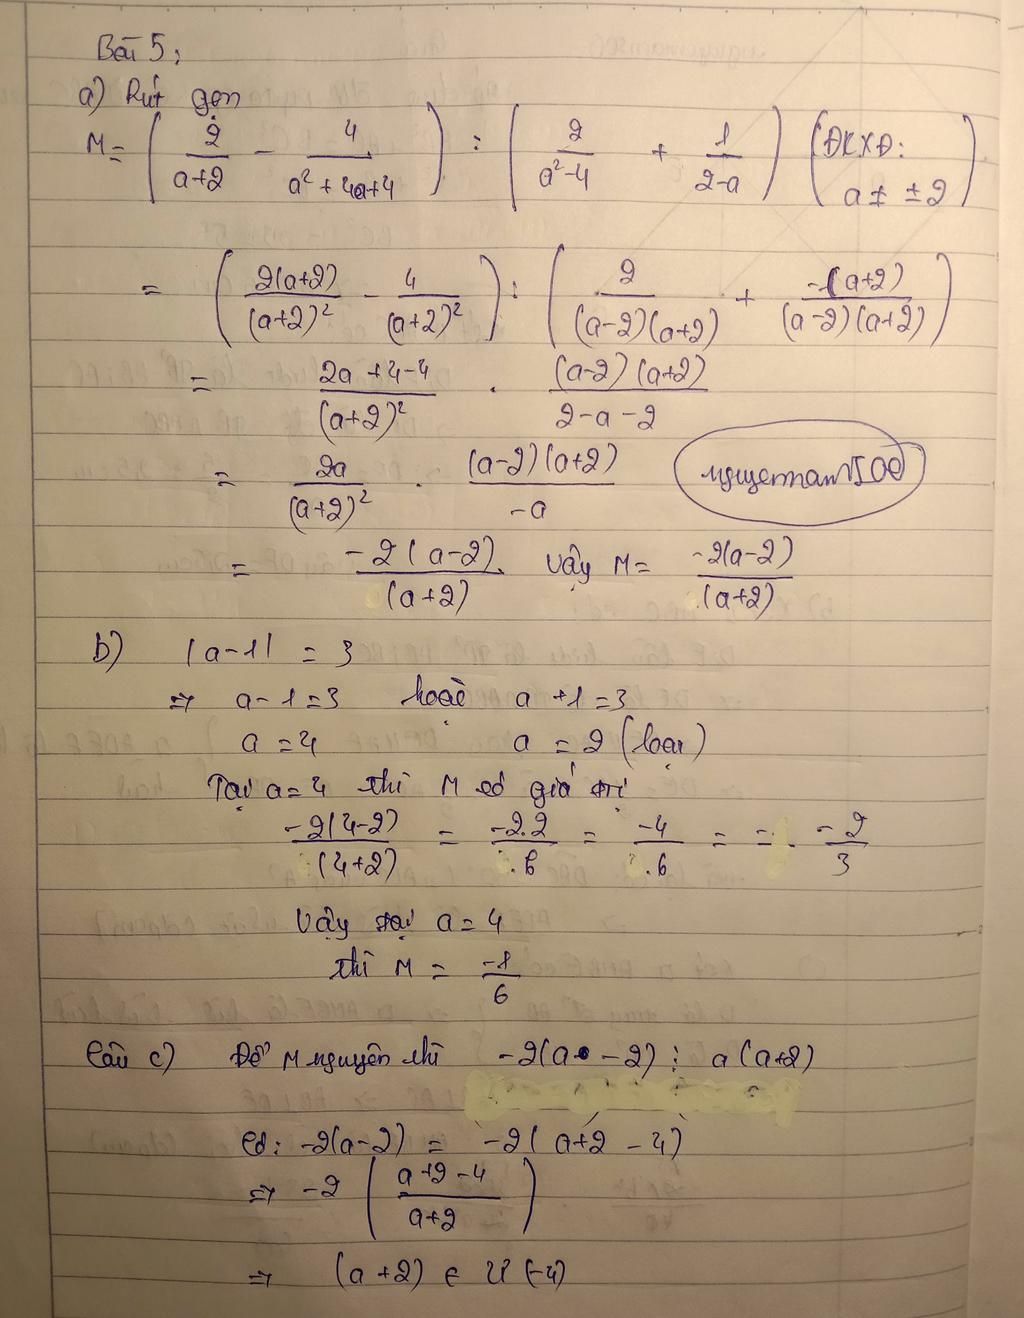 Bài 5:
a) Rút gọn
M = ( 2/(a+2) - 4/(a²+4a+4) ) : ( 2/(a²-4) + 1/(2-a) ) ( ĐKXĐ: a ≠ ±2 )
= ( 2(a+2)/(a+2)² - 4/(a+2)² ) : ( 2/((a-2)(a+2)) + -1(a+2)/((a-2)(a+2)) )
= (2a+4-4)/(a+2)² . (a-2)(a+2)/(2-a-2)
= 2a/(a+2)² . (a-2)(a+2)/-a
= -2(a-2)/(a+2). Vậy M = -2(a-2)/(a+2)
b) |a-1| = 3
⇒ a-1=3 hoặc a+1=3
a = 4 a = 2 (loại)
Tại a=4 thì M có giá trị
-2(4-2)/(4+2) = -2.2/.6 = -4/.6 = = -2/3
Vậy tại a = 4
thì M = -1/6
Câu c) Để M nguyên thì -2(a-2) ⋮ a(a+2)
Có: -2(a-2) = -2(a+2-4)
⇒ -2 ( (a+2-4)/(a+2) )
⇒ (a+2) ∈ Ư(-4)